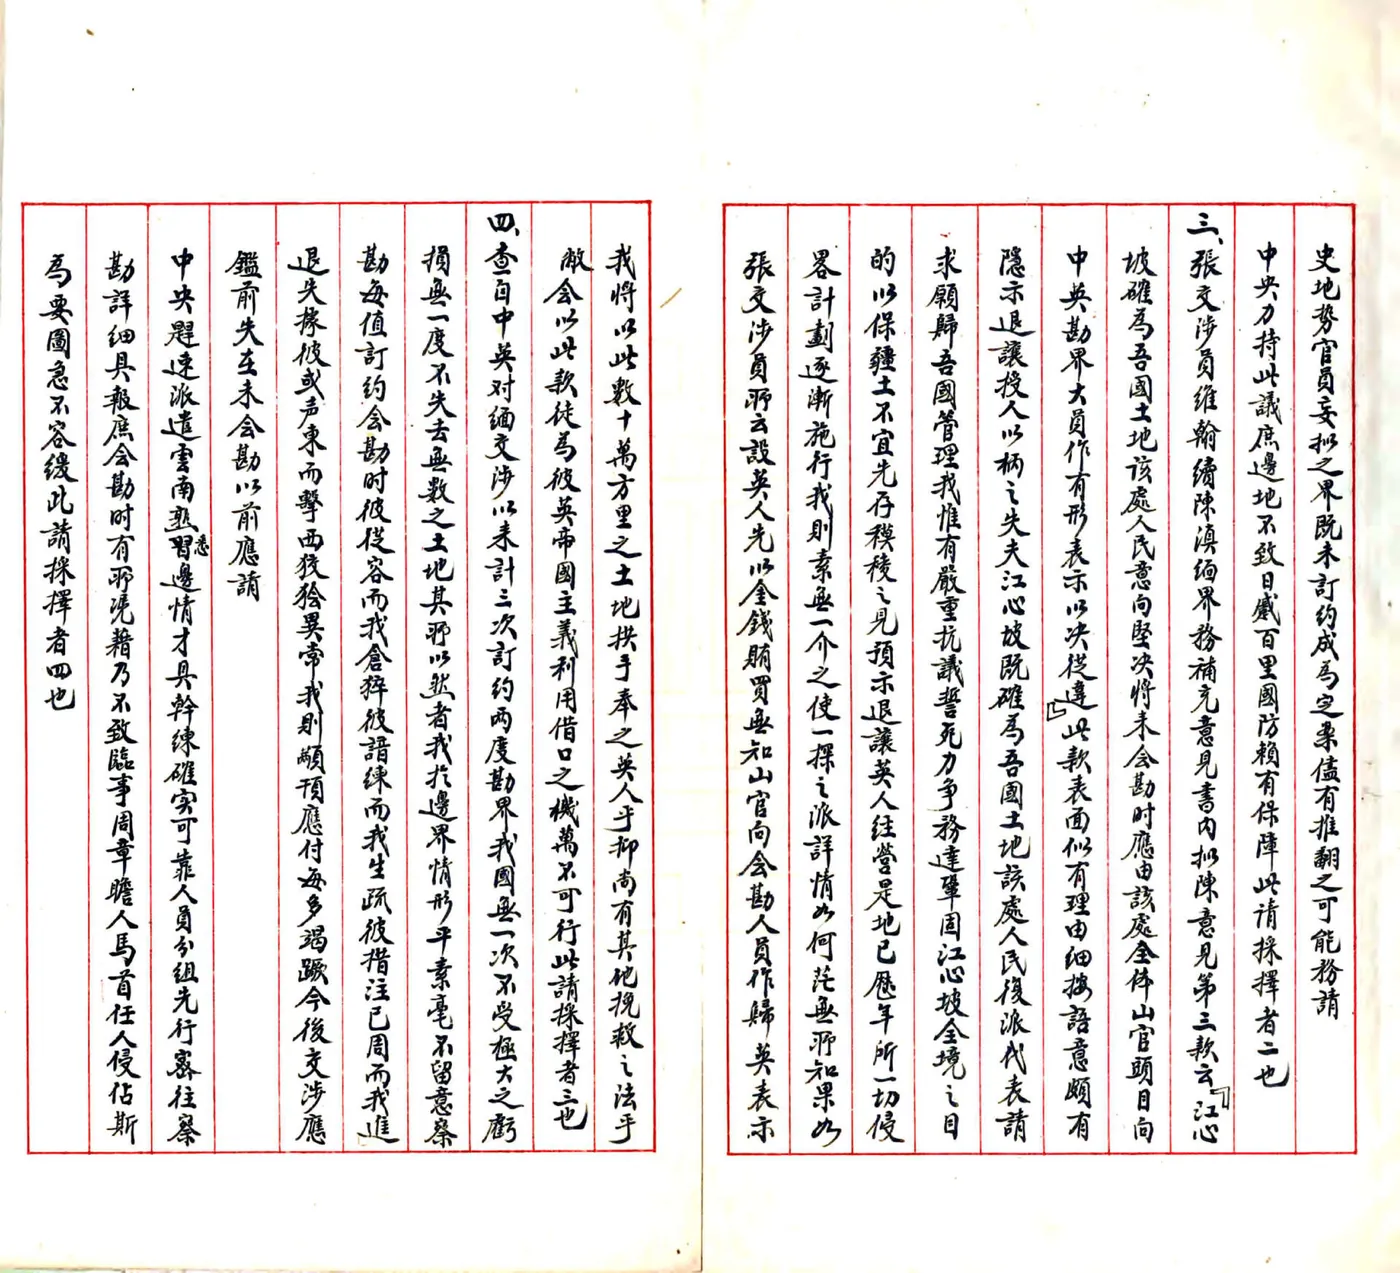 史地勢官員妄拟之界既未訂約成為定案儘有推翻之可能務請
中央力持此議庶邊地不致日蹙百里國防賴有保障此请採擇者二也
三、張交涉員維翰續陳滇缅界務補充意見書内拟陳意見第三款云「江心
坡確為吾國土地該處人民意向堅决將来会勘时應由該處全体山官頭目向
中英勘界大員作有形表示以决從違」此款表面似有理由细按語意頗有
隱示退讓授人以柄之失夫江心坡既確為吾國土地該處人民復派代表請
求願歸吾國管理我惟有嚴重抗議誓死力争務達鞏固江心坡全境之目
的以保疆土不宜先存模稜之見預示退讓英人经營是地已歷年所一切侵
畧計劃逐漸施行我則素無一介之使一探之派詳情如何茫無所知果如
張交涉員所云設英人先以金錢賄買無知山官向会勘人員作歸英表示
我將以此数十萬方里之土地拱手奉之英人乎抑尚有其他挽救之法乎
敝会以此款徒為彼英帝國主義利用借口之機萬不可行此請採擇者三也
四、查自中英对缅交涉以来計三次訂約两度勘界我國無一次不受極大之虧
損無一度不失去無数之土地其所以然者我於邊界情形平素毫不留意察
勘每值訂約会勘时彼從容而我倉猝彼諳練而我生疏彼措注已周而我進
退失據彼或声東而擊西狡猾異常我則顢頇應付每多竭蹶今後交涉應
鑑前失在未会勘以前應請
中央趕速派遣雲南熟習悉邊情才具幹練確实可靠人員分組先行密往察
勘詳细具報庶会勘时有所凭藉乃不致臨事周章瞻人馬首任人侵佔斯
為要圖急不容缓此請採擇者四也